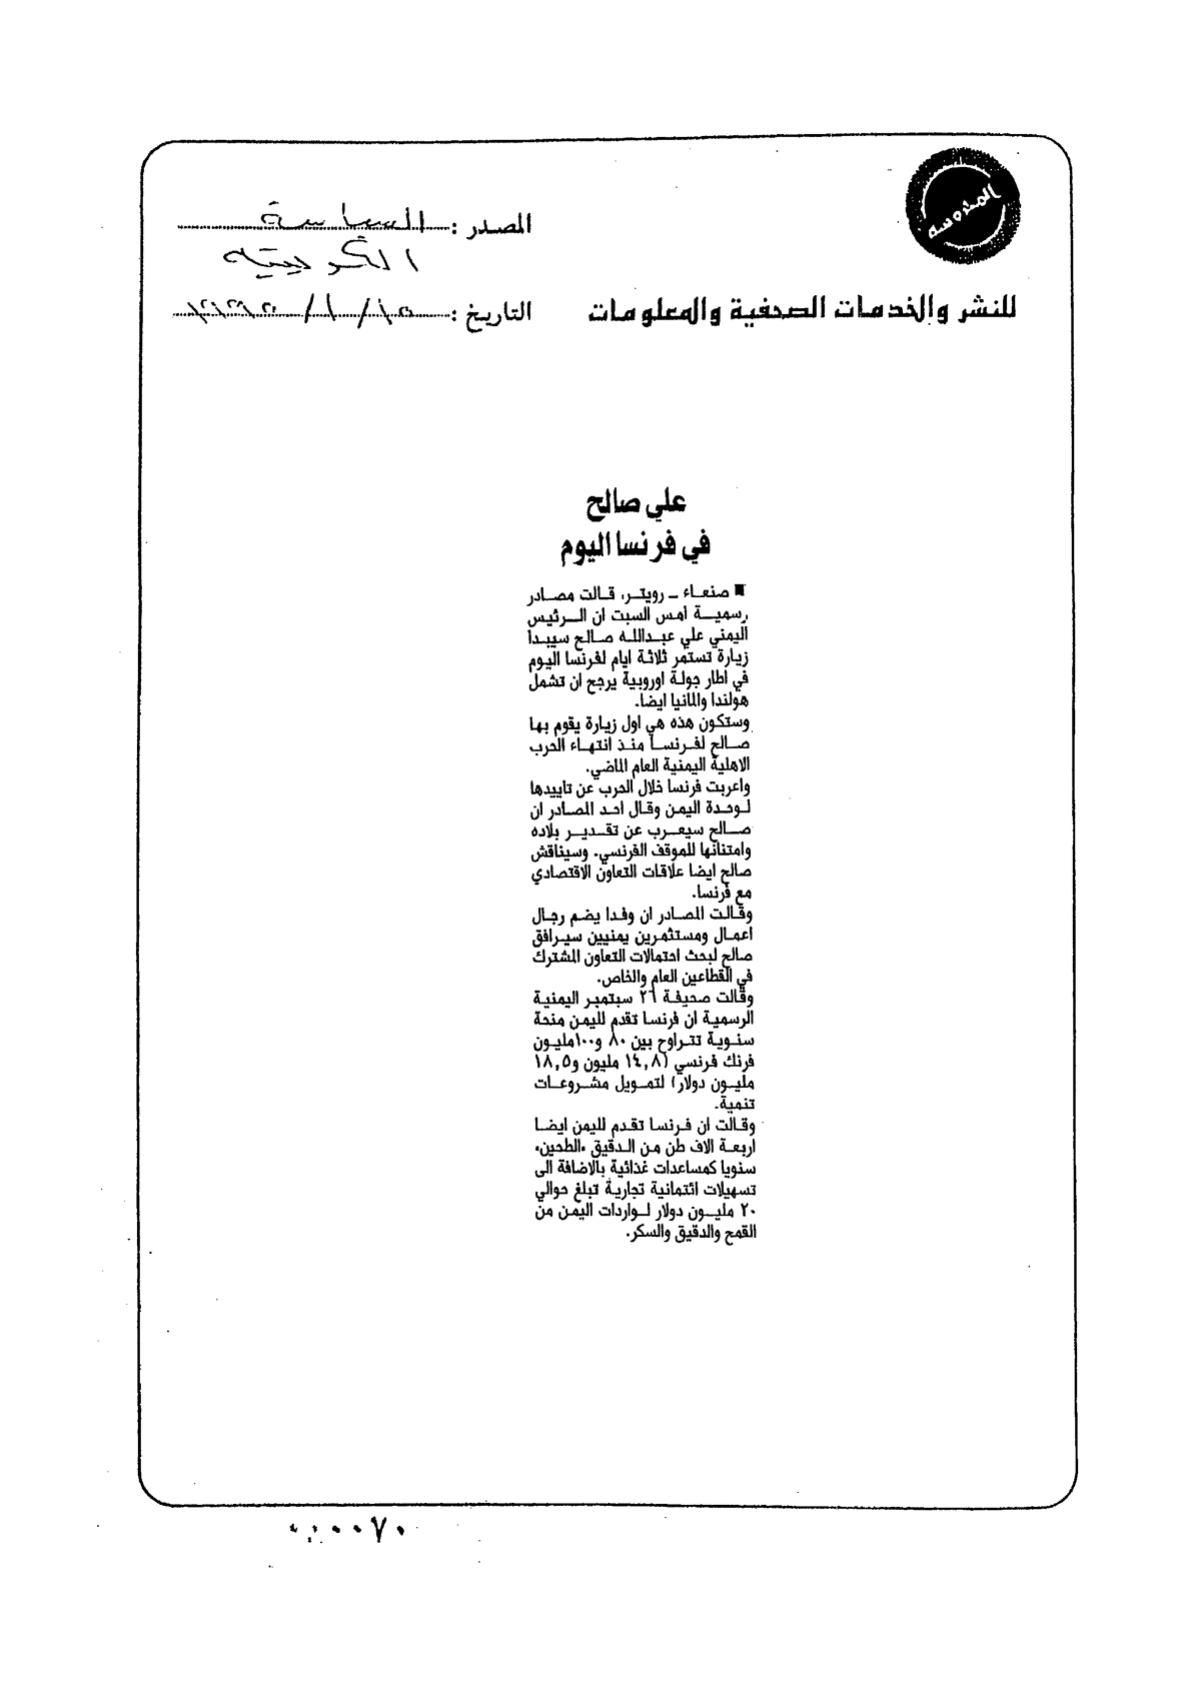 المحروسة
المصدر : السياسة
الكويتيه
للنشر والخدمات الصحفية والمعلومات
التاريخ : ١٥/١/
علي صالح
في فرنسا اليوم
■ صنعاء – رويتر، قالت مصادر
رسمية امس السبت ان الرئيس
اليمني علي عبدالله صالح سيبدأ
زيارة تستمر ثلاثة ايام لفرنسا اليوم
في اطار جولة اوروبية يرجح ان تشمل
هولندا والمانيا ايضا.
وستكون هذه هي اول زيارة يقوم بها
صالح لفرنسا منذ انتهاء الحرب
الاهلية اليمنية العام الماضي.
واعربت فرنسا خلال الحرب عن تاييدها
لوحدة اليمن وقال احد المصادر ان
صالح سيعرب عن تقدير بلاده
وامتنانها للموقف الفرنسي. وسيناقش
صالح ايضا علاقات التعاون الاقتصادي
مع فرنسا.
وقالت المصادر ان وفدا يضم رجال
اعمال ومستثمرين يمنيين سيرافق
صالح لبحث احتمالات التعاون المشترك
في القطاعين العام والخاص.
وقالت صحيفة ٢٦ سبتمبر اليمنية
الرسمية ان فرنسا تقدم لليمن منحة
سنوية تتراوح بين ٨٠ و١٠٠مليون
فرنك فرنسي (١٤,٨ مليون و١٨,٥
مليون دولار) لتمويل مشروعات
تنمية.
وقالت ان فرنسا تقدم لليمن ايضا
اربعة الاف طن من الدقيق «الطحين»
سنويا كمساعدات غذائية بالاضافة الى
تسهيلات ائتمانية تجارية تبلغ حوالي
٢٠ مليون دولار لواردات اليمن من
القمح والدقيق والسكر.